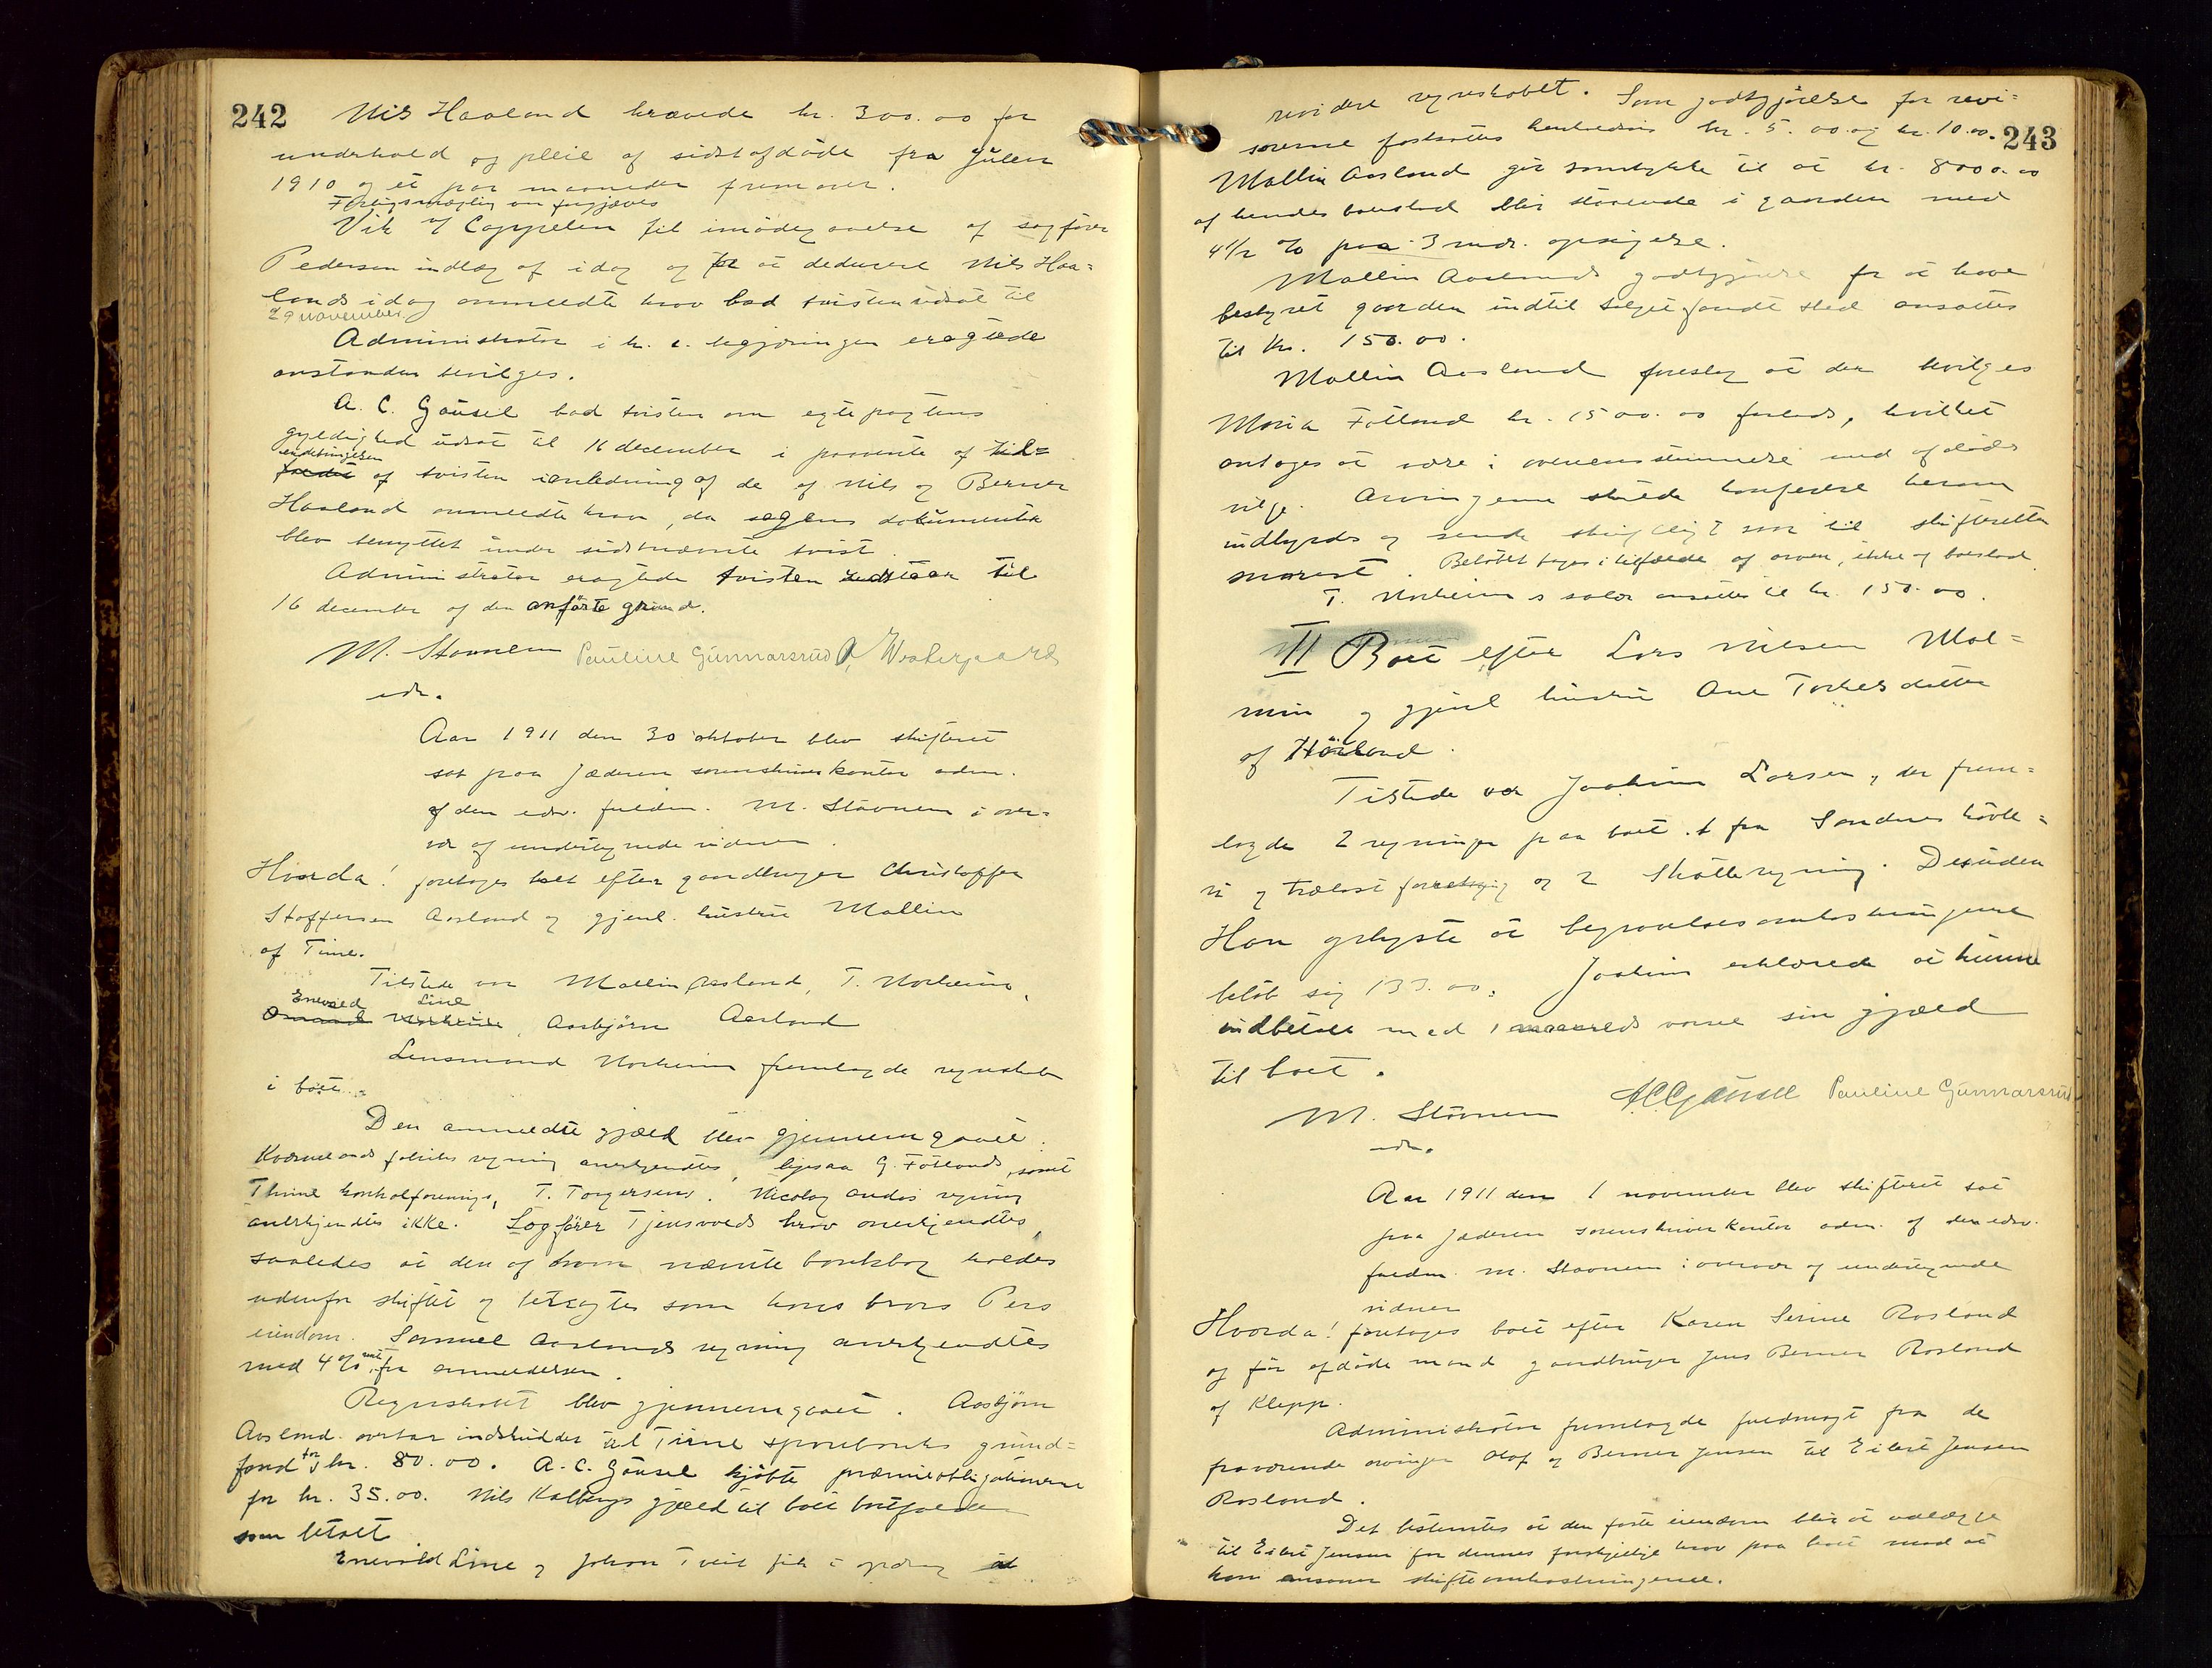 242
Nils Haaland krævede kr. 300.00 for
underhold og pleie af sidstafdøde fra julen
1910 og et par maaneder fremover.
Forligsmægling om forgjæves
Vik og Cappelen til imødegaaelse af sagfører
Pedersen indlæg af idag og for at deducere Nils Haa=
lands idag anmeldte krav bad tvisten udsat til
29 november.
Administrator i h. t. begjæringen eragtede
anstanden bevilges.
A. C. Gausel bad tvisten om egtepagtens
gyldighed udsat til 16 december i paavente af til=
endebringelsen
af tvisten i anledning af de af Nils og Berner
Haaland anmeldte krav, da sagens dokumenter
blev benyttet under sidstnævnte tvist.
Administrator eragtede tvisten udstaar til
16 december af den anførte grund.
M. Stavnem Pauline Gunnarsrud A. Westergaard
edv.
Aar 1911 den 30 oktober blev skifteret
sat paa Jæderen sorenskriverkontor adm.
af den edv. fuldm. M. Stavnem i over=
vær af undertegnede vidner.
Hvorda! foretages boet efter gaardbruger Christoffer
Stoffersen Aasland og gjenl. hustru Mallin
af Time.
Tilstede var Mallin Aasland, T. Norheim,
Enevald Line
Asbjørn Aasland
Lensmand Norheim fremlagde regnskab
i boet.
Den anmeldte gjæld blev gjennemgaaet.
Kværnelands fabriks regning anerkjendtes, ligesaa G. Fotlands, samt
Thime kontrolforenings, T. Torgersens. Nicolay Andås regning
anerkjendtes ikke. Sagfører Tjensvolds krav anerkjendtes,
saaledes at den af ham nævnte bankbog holdes
udenfor skiftet og betragtes som hans brors Pers
eiendom. Samuel Aaslands regning anerkjendtes
med 4% rente fra anmeldelsen.
Regnskabet blev gjennemgaaet. Aasbjørn
Aasland overtar indskuddet til Time sparebanks grund=
fond for kr. 80.00. A. C. Gausel kjøbte præmieobligationerne
for kr. 35.00. Nils Kalbergs gjæld til boet bortfalder
som betalt
Enevald Line og Johan Tveit fik i opdrag at
243
revidere regnskabet. Som godtgjørelse for revi=
sorerne fastsattes henholdsvis kr. 5.00 og kr. 10.00.
Mallin Aasland gir samtykke til at kr. 8000.00
af hendes boeslod blir staaende i gaarden med
4 1/2 % paa 3 mdr. opsigelse.
Mallin Aaslands godtgjørelse for at have
bestyret gaarden indtil salget fandt sted ansattes
til kr. 150.00.
Mallin Aasland foreslog at der bevilges
Maria Fotland kr. 1500.00 forlods, hvilket
antages at være i overensstemmelse med afdødes
vilje. Arvingerne skulde konferere herom
indbyrdes og sende skriftligt svar til skifteretten
snarest. Beløbet tages i tilfælde af arven, ikke af boeslod.
T. Norheims salær ansattes til kr. 150.00.
II Boet efter Lars Nilsen Mal=
min og gjenl hustru Ane Torkelsdatter
af Høiland.
Tilstede var Joakim Larsen, der frem=
lagde 2 regninger paa boet 1 fra Sandnes høvle=
ri og trælast forretning og 2 Skatteregning. Desuden
Han oplyste at begravelsesomkostningerne
beløb sig 133.00. Joakim erklærede at kunne
indbetale med 1 maaneds varsel sin gjæld
til boet.
M. Stavnem A C Gausel Pauline Gunnarsrud
edv.
Aar 1911 den 1 november blev skifteret sat
paa Jæderen sorenskriverkontor adm. af den edsv.
fuldm. M. Stavnem i overvær af undertegnede
vidner
Hvorda! foretages boet efter Karen Serine Rosland
og før afdøde mand gaardbruger Jens Berner Rosland
af Klepp.
Administrator fremlagde fuldmagt fra de
fraværende arvinger Olaf og Berner Jensen til Eilert Jensen
Rosland.
Det bestemtes at den faste eiendom blir at udlægge
til Eilert Jensen for dennes forskjellige krav paa boet mod at
han ansvarer skifteomkostningerne.